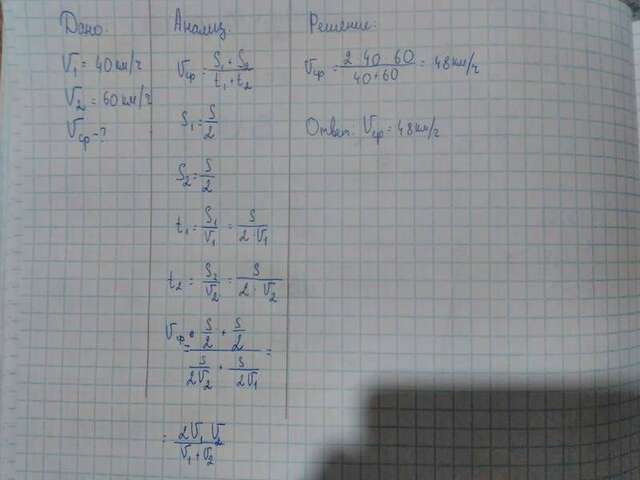 Дано:
V₁ = 40 км/ч
V₂ = 60 км/ч
Vср - ?
Анализ:
Vср = (S₁ + S₂) / (t₁ + t₂)
S₁ = S/2
S₂ = S/2
t₁ = S₁/V₁ = S/(2·V₁)
t₂ = S₂/V₂ = S/(2·V₂)
Vср = (S/2 + S/2) / (S/2V₂ + S/2V₁) =
= 2V₁V₂ / (V₁ + V₂)
Решение:
Vср = (2·40·60) / (40+60) = 48 км/ч
Ответ: Vср = 48 км/ч